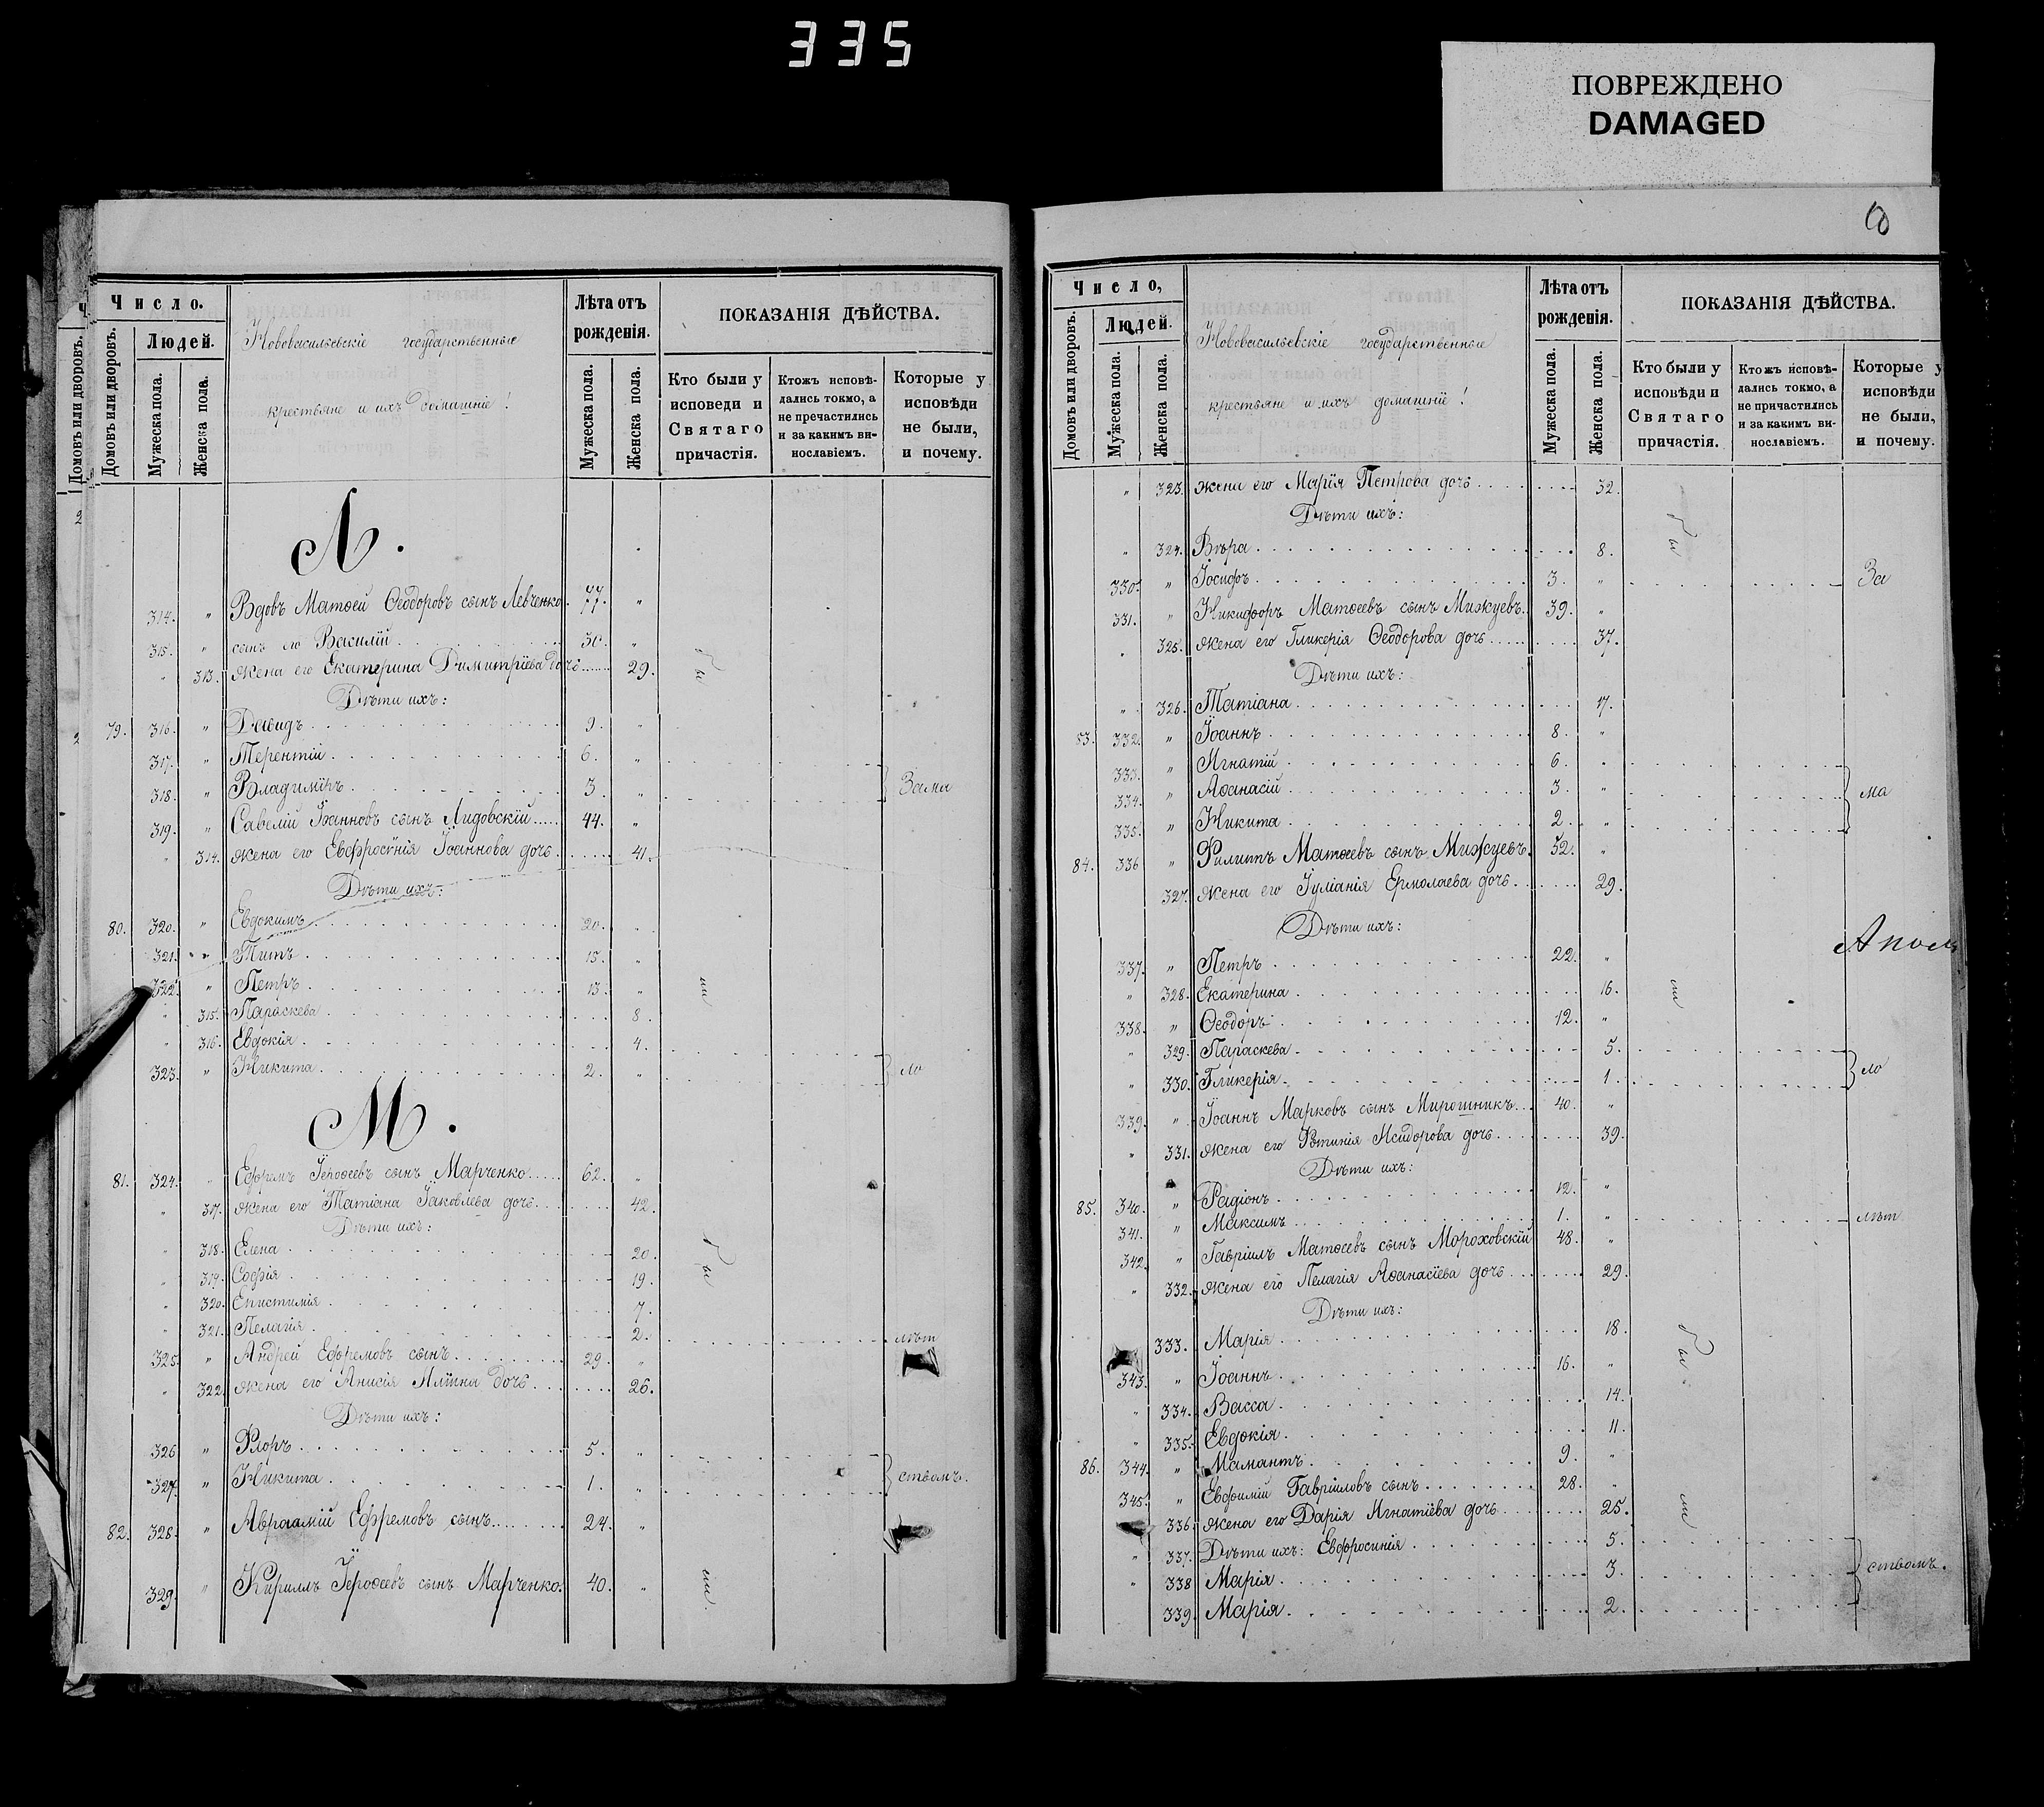 335
ПОВРЕЖДЕНО
DAMAGED
Число.
Людей.
Домовъ или дворовъ.
Домовъ или дворовъ.
Мужеска пола.
Женска пола.
Нововасильевскіе государственные
крестьяне и ихъ домашніе!
Лѣта отъ
рожденія.
Мужеска пола.
Женска пола.
ПОКАЗАНІЯ ДѢЙСТВА.
Кто были у
исповеди и
Святаго
причастія.
Ктожъ исповѣ-
дались токмо, а
не пречастились
и за какимъ ви-
нословіемъ.
Которые у
исповѣди
не были,
и почему.
Л.
314. " Вдовъ Матѳей Ѳеодоровъ сынъ Левченко. 77. "
315. " сынъ его Василій 30. "
" 313. жена его Екатерина Димитріева дочь 29. бы
Дѣти ихъ:
79. 316. " Давидъ 9. "
317. " Терентій 6. "
318. " Владиміръ 3. " Зама
319. " Савелій Іоанновъ сынъ Лидовскій 44. "
" 314. жена его Евфросинія Іоаннова дочь 41.
Дѣти ихъ:
80. 320. " Евдокимъ 20. "
321. " Титъ 15. "
322. " Петръ 13. " ли
" 315. Параскева 8.
" 316. Евдокія 4.
323. " Никита 2. " ло
М.
81. 324. " Ефремъ Іероѳеевъ сынъ Марченко 62. "
" 317. жена его Татіана Іаковлева дочь 42.
Дѣти ихъ:
" 318. Елена 20. бы
" 319. Софія 19.
" 320. Епистимія 7.
" 321. Пелагія 2. лѣт
325. " Андрей Ефремовъ сынъ 29. "
" 322. жена его Анисія Иліина дочь 26.
Дѣти ихъ:
326. " Флоръ 5. "
327. " Никита 1. " ствомъ.
82. 328. " Авраамій Ефремовъ сынъ 24. "
329. " Кириллъ Іероѳеевъ сынъ Марченко. 40. " ли.
Число,
Людей.
Домовъ или дворовъ.
Мужеска пола.
Женска пола.
Нововасильевскіе государственные
крестьяне и ихъ домашніе!
Лѣта отъ
рожденія.
Мужеска пола.
Женска пола.
ПОКАЗАНІЯ ДѢЙСТВА.
Кто были у
исповѣди и
Святаго
причастія.
Ктожъ исповѣ-
дались токмо, а
не причастились
и за какимъ ви-
нославіемъ.
Которые у
исповѣди
не были,
и почему.
" 323. жена его Марія Петрова дочь 32.
Дѣти ихъ: бы
" 324. Вѣра 8.
330. " Іосифъ 3. " За
331. " Никифоръ Матѳеевъ сынъ Мижуевъ 39. "
" 325. жена его Гликерія Ѳеодорова дочь 37.
Дѣти ихъ:
" 326. Татіана 17.
83. 332. " Іоаннъ 8. "
333. " Игнатій 6. "
334. " Аѳанасій 3. " ма
335. " Никита 2. "
84. 336 " Филипъ Матѳеевъ сынъ Мижуевъ. 52. "
327. жена его Іуліанія Ермолаева дочь 29.
Дѣти ихъ:
337. " Петръ 22. "
" 328. Екатерина 16. ли
338. " Ѳеодоръ 12. "
" 329. Параскева 5.
" 330. Гликерія 1. ло
339. " Іоаннъ Марковъ сынъ Мирошникъ 40. "
" 331. жена его Фотинія Исидорова дочь 39.
Дѣти ихъ:
85. 340. " Радіонъ 12. "
341. " Максимъ 1. " лѣт
342. " Гавріилъ Матѳеевъ сынъ Мороховскій 48. "
" 332. жена его Пелагія Аѳанасіева дочь 29.
Дѣти ихъ:
333. Марія 18. бы
343. " Іоаннъ 16. "
" 334. Васса 14.
" 335. Евдокія 11.
86. 344. " Мамантъ 9. "
345. " Евфимій Гавріиловъ сынъ 28. "
336. жена его Дарія Игнатіева дочь 25. ли
" 337. Дѣти ихъ: Евфросинія 5.
" 338 Марія 3. ствомъ.
339. Марія 2.